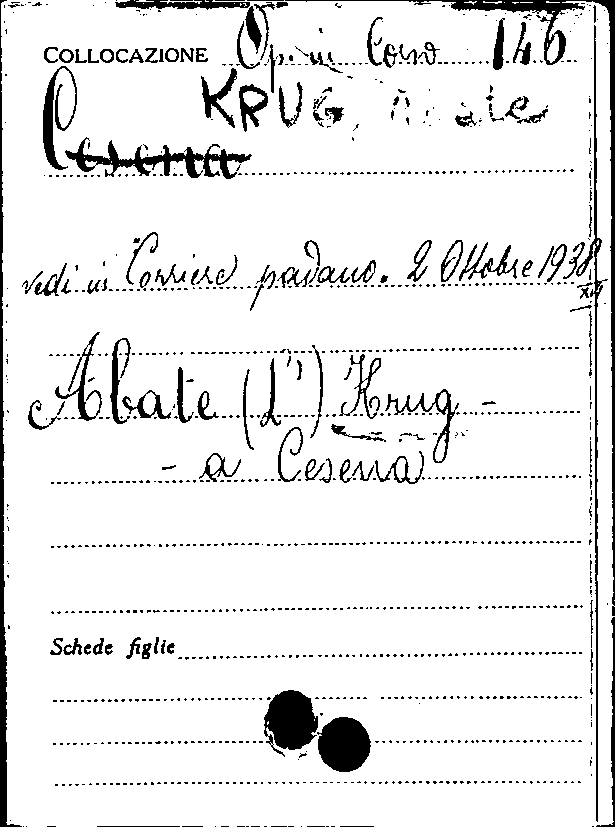 COLLOCAZIONE Op. in Corso 146
KRUG, Abate
Cesena
vedi in Corriere padano. 2 Ottobre 1938
XVI
Abate (L') Krug -
- a Cesena
Schede figlie